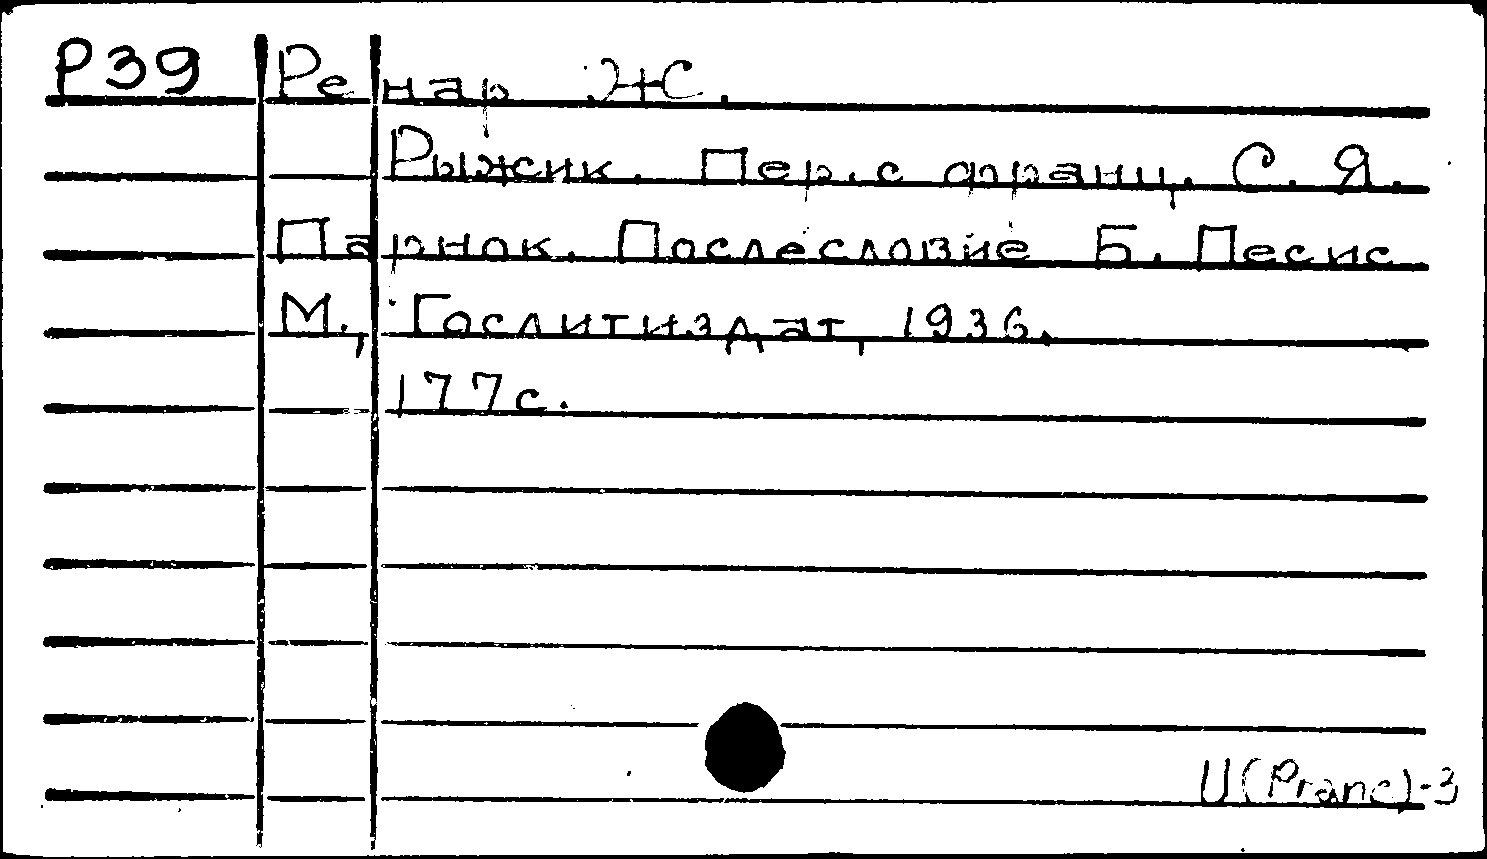 Р39 Ренар Ж.
Рыжик. Пер. с франц. С. Я.
Парнок. Послесловие Б. Песис
М., Гослитиздат, 1936.
177с.
И(Франс)-3